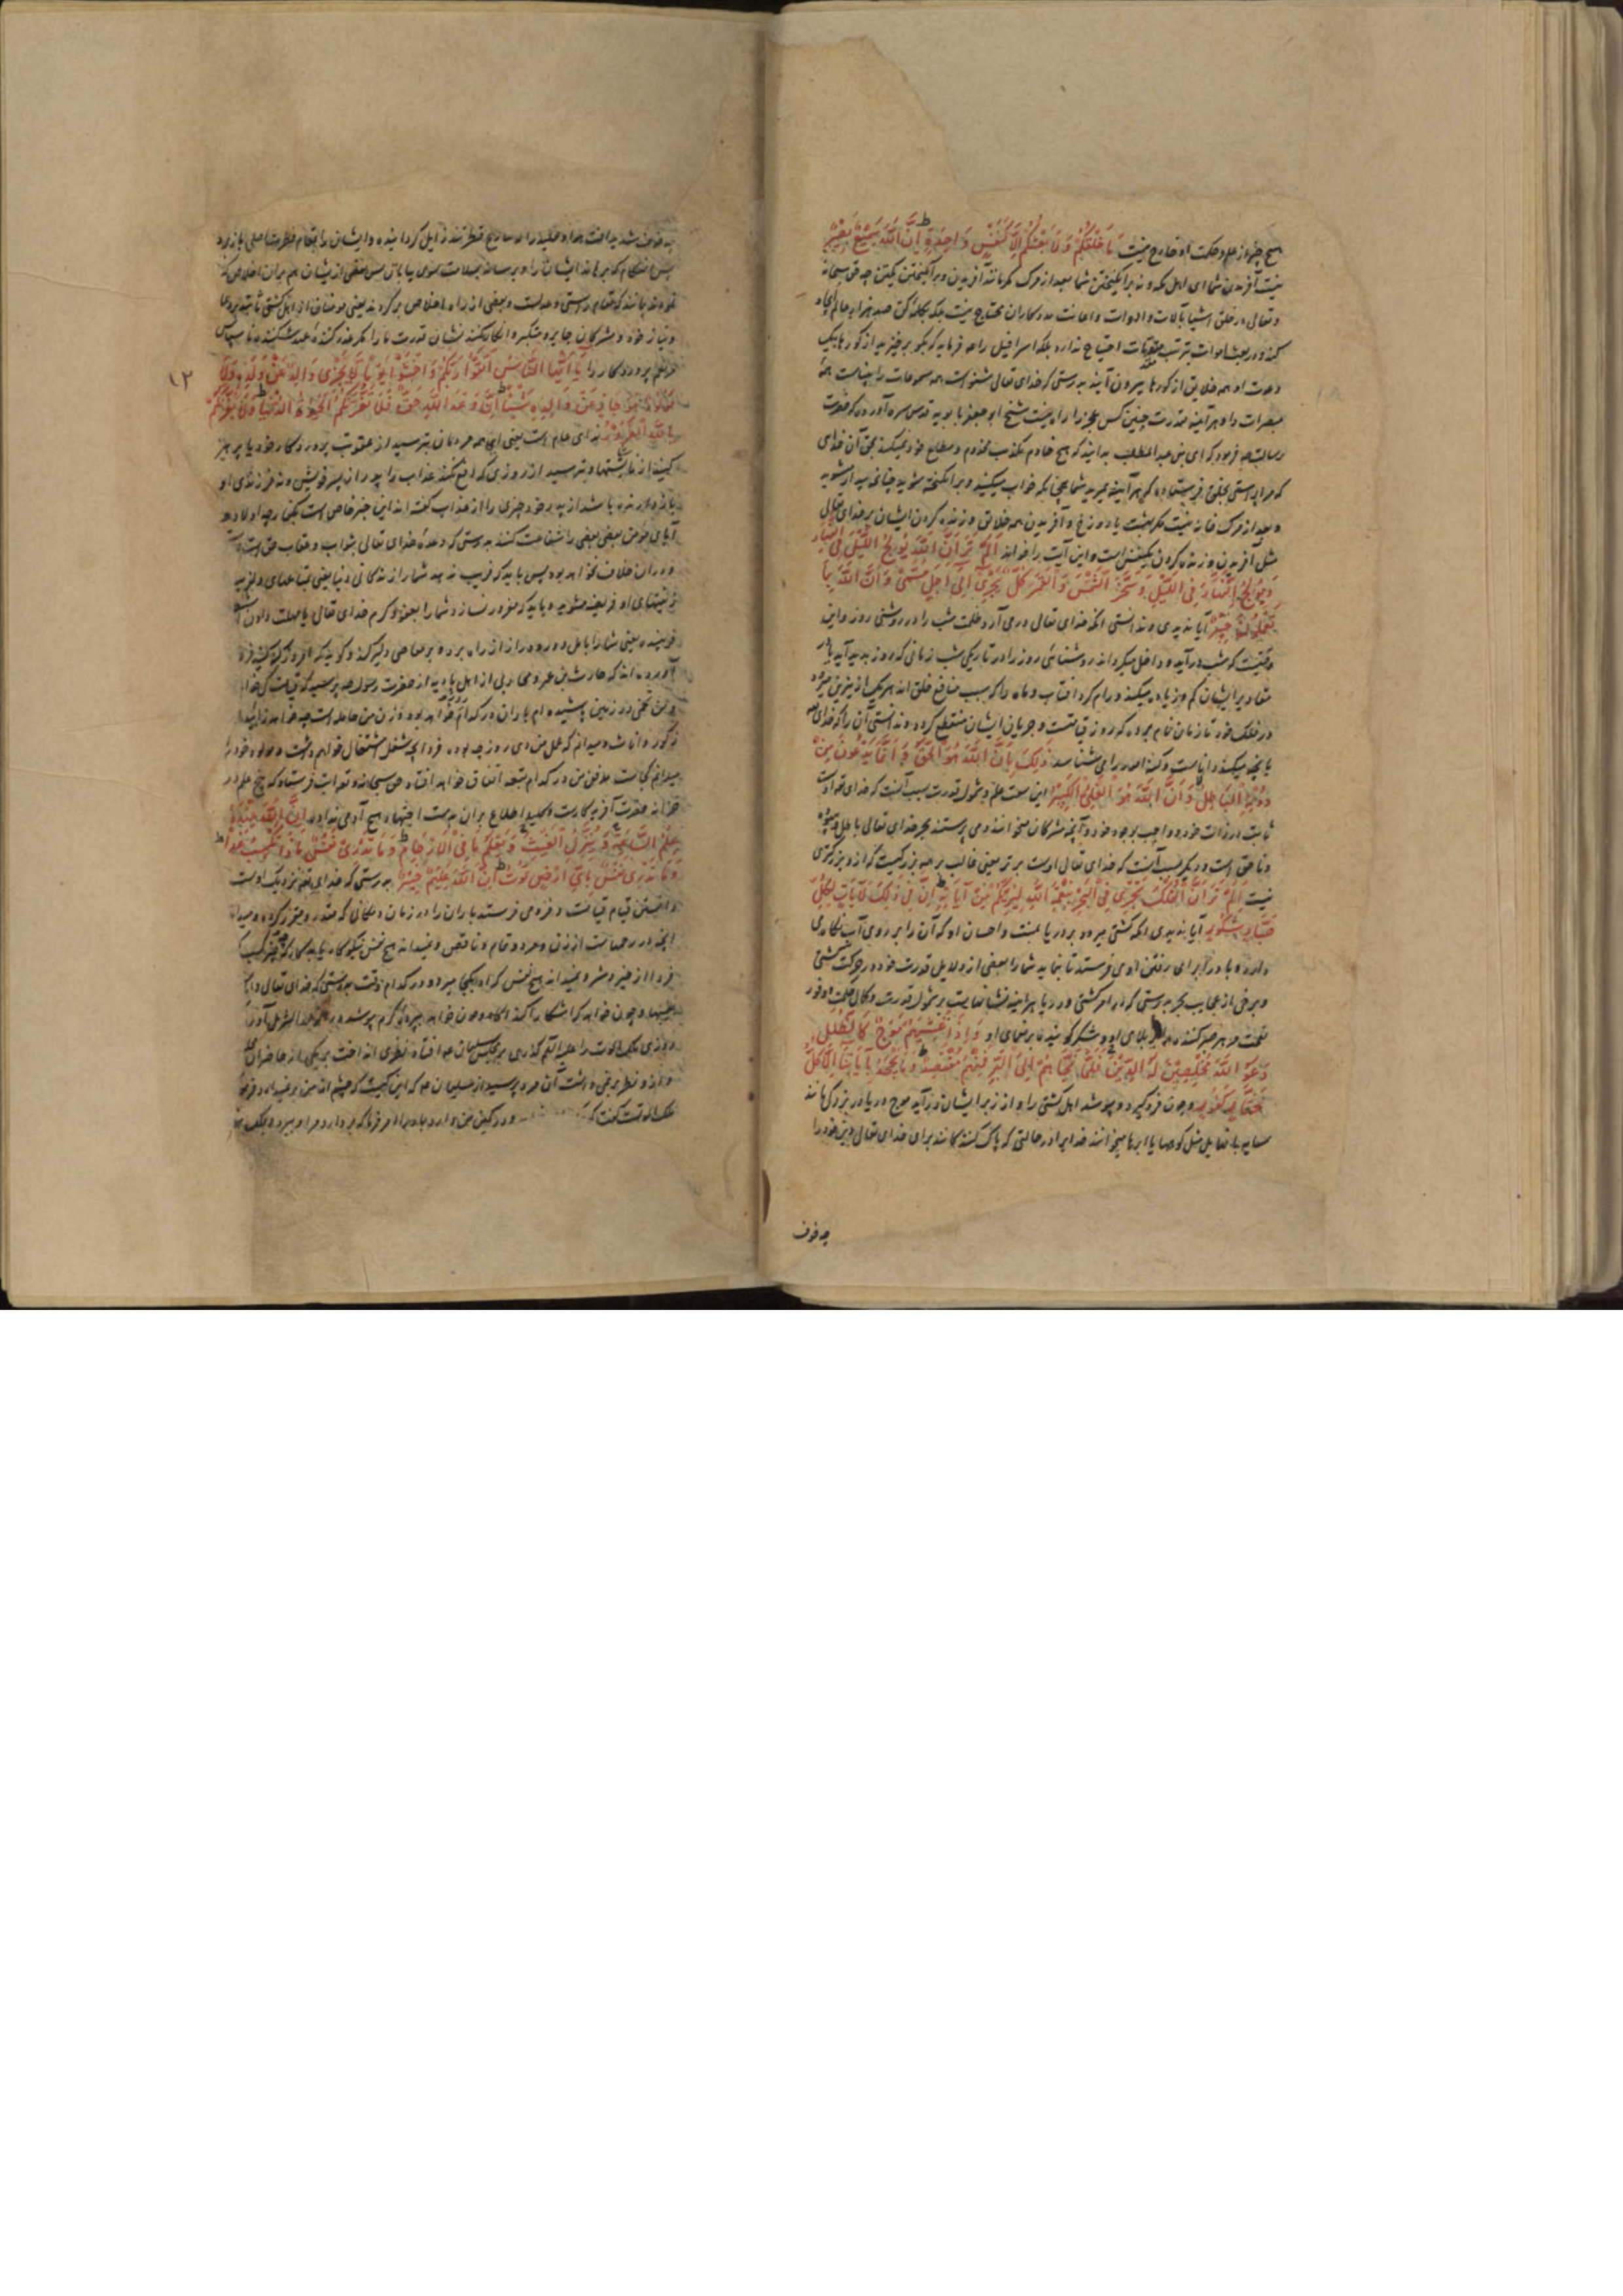 هیچ چیز از علم و حکمت او خارج نیست مَا خَلْقُكُمْ وَلَا بَعْثُكُمْ اِلَّا كَنَفْسٍ وَاحِدَةٍ اِنَّ اللّٰهَ سَمِيعٌ بَصِيرٌ
نیست آفریدن شما ای اهل مکه و نه برانگیختن شما بعد از مرگ مگر مانند آفریدن و برانگیختن یکتن چه حق سبحانه
و تعالی در خلق اشیا بآلات و ادوات و اعانت مددکاران محتاج نیست بلکه بکلمه کن صد هزار عالم
کند و در بعث اموات بترتیب مقدمات احتیاج ندارد بلکه اسرافیل را فرماید که بگو برخیزید از گورها بیک
دعوت او همه خلایق از گورها بیرون آیند بدرستی که خدای تعالی شنواست همه مسموعات را بیناست همه
مبصرات را و هرآینه قدرت چنین کس عجز را راه نیست شیخ ابو جعفر بابویه قدس سره آورده که حضرت
رسالت فرمود که ای بنی عبد المطلب بدانید که هیچ خادم تکذیب مخدوم و مطاع خود نمیکند بحق آن خدای
که مرا براستی بخلق فرستاده که هرآینه بمیرید شما همچنانکه خواب میکنید و برانگیخته شوید چنانچه بیدار شوید
و بعد از مرگ خانه نیست مگر بهشت یا دوزخ و آفریدن همه خلایق و زنده کردن ایشان بر خدای تعالی
مثل آفریدن و زنده کردن یکنفس است و این آیت را خواند اَلَمْ تَرَ اَنَّ اللّٰهَ يُولِجُ اللَّيْلَ فِي النَّهَارِ
وَيُولِجُ النَّهَارَ فِي اللَّيْلِ وَسَخَّرَ الشَّمْسَ وَالْقَمَرَ كُلٌّ يَجْرِي اِلٰى اَجَلٍ مُسَمًّى وَاَنَّ اللّٰهَ بِمَا
تَعْمَلُونَ خَبِيرٌ آیا ندیدی و ندانستی آنکه خدای تعالی درمی آرد ظلمت شب را در روشنی روز و این
وقتیست که شب درآید و داخل میگرداند روشنائی روز را در تاریکی شب زمانی که روز پدید آید یا در
مقادیر ایشان کم و زیاده میکند و رام کرد آفتاب و ماه را که سبب منافع خلق اند هر یک از نیرین میرود
در فلک خود تا زمان نام برده که روز قیامتست و جریان ایشان منقطع گردد و ندانستی آن را که خدای
بانچه میکنید داناست و کنه امور را می شناسد ذٰلِكَ بِاَنَّ اللّٰهَ هُوَ الْحَقُّ وَاَنَّ مَا يَدْعُونَ مِنْ
دُونِهِ الْبَاطِلُ وَاَنَّ اللّٰهَ هُوَ الْعَلِيُّ الْكَبِيرُ این سعت علم و شمول قدرت بسبب آنست که خدای تعالی اوست
ثابت در ذات خود و واجب بوجود خود و آنچه مشرکان میخوانند و می پرستند بجز خدای تعالی باطل و بیهوده
و ناحق است و دیگر بسبب آنست که خدای تعالی اوست برتر یعنی غالب بر همه بزرگیست که از و بزرگتری
نیست اَلَمْ تَرَ اَنَّ الْفُلْكَ تَجْرِي فِي الْبَحْرِ بِنِعْمَةِ اللّٰهِ لِيُرِيَكُمْ مِنْ آيَاتِهِ اِنَّ فِي ذٰلِكَ لَآيَاتٍ لِكُلِّ
صَبَّارٍ شَكُورٍ آیا ندیدی آنکه کشتی میرود بر دریا بمنت و احسان او که آن را بر روی آب نگاه می
دارد و باد را برای رفتن او می فرستد تا بنماید شما را بعضی از دلایل قدرت خود در حرکت کشتی
و برخی از عجایب بحر بدرستی که در امر کشتی و دریا هرآینه نشانهاست بر شمول قدرت و کمال حکمت و وفور
نعمت مر هر صبر کننده بر بلای او و شکر گوینده بر نعمای او وَاِذَا غَشِيَهُمْ مَوْجٌ كَالظُّلَلِ
دَعَوُا اللّٰهَ مُخْلِصِينَ لَهُ الدِّينَ فَلَمَّا نَجَّاهُمْ اِلَى الْبَرِّ فَمِنْهُمْ مُقْتَصِدٌ وَمَا يَجْحَدُ بِآيَاتِنَا اِلَّا كُلُّ
خَتَّارٍ كَفُورٍ و چون فروگیرد و بپوشد اهل کشتی را و از زبر ایشان درآید موج دریا در بزرگی مانند
سایه بانها یا مثل کوهها یا ابرها میخوانند خدا را در حالتی که پاک کنندگانند برای خدای تعالی دین خود را
چه خوف
چه خوف شدید آفت هوا و تقلید را که منازع فطرتند زایل گردانیده و ایشان را بمقام فطرت اصلی باز برد
پس هنگام که برهاند ایشان را و برساند بسلامت بسوی بیابان پس بعضی از یشان هم بران اخلاص که
نموده اند بمانند که مقام راستی و عدلست و بعضی از راه اخلاص برگردند یعنی مومنان از اهل کشتی ثابتند بر دعا
و نیاز خود و مشرکان جابر و متکبر و انکار نکنند نشان قدرت ما را مگر غدر کننده عهد شکننده ناسپاس
در نعم پروردگار را يَا اَيُّهَا النَّاسُ اتَّقُوا رَبَّكُمْ وَاخْشَوْا يَوْمًا لَا يَجْزِي وَالِدٌ عَنْ وَلَدِهِ وَلَا
مَوْلُودٌ هُوَ جَازٍ عَنْ وَالِدِهِ شَيْئًا اِنَّ وَعْدَ اللّٰهِ حَقٌّ فَلَا تَغُرَّنَّكُمُ الْحَيٰوةُ الدُّنْيَا وَلَا يَغُرَّنَّكُمْ
۱۲
بِاللّٰهِ الْغَرُورُ ندای عام است یعنی ای همه مردمان بترسید از عقوبت پروردگار خود یا پرهیز
کنید از ناشایستها و بترسید از روزی که دفع نکند عذاب را پدر از پسر خویش و نه فرزندی او
باز دارنده باشد از پدر خود چیزی را از عذاب گفته اند این خبر خاص است بکفار چه اولاد و
آبای مومن بعضی بعضی را شفاعت کنند بدرستی که وعده خدای تعالی بثواب و عقاب حق است
و دران خلاف نخواهد بود پس باید که فریب ندهد شما را زندگانی دنیا یعنی بمتاعهای دلفریب
زینتهای او فریفته مشوید و باید که مغرور نسازد شما را بعفو و کرم خدای تعالی یا مهلت دادن
فریبنده یعنی شما را بامل دور و دراز از راه برده بر معاصی دلیر کند و گوید که امروز گنه کنید فردا
آورده اند که حارث بن عمرو محاربی از اهل بادیه از حضرت رسول پرسید که قیامت کی خواهد
و من تخمی در زمین پاشیده ام باران در کدام خواهد بود و زن من حامله است چه خواهد زائید
ذکور و اناث و میدانم که عمل من دی روز چه بود فردا بچه شغل اشتغال خواهم داشت و مولد خود را
میدانم کجاست مدفن من در کدام بقعه اتفاق خواهد افتاد حق سبحانه و تعالی آیت فرستاد که پنج علم در
خزانه حضرت آفریدگارست و کلید اطلاع بران بدست اجتهاد هیچ آدمی نداده اِنَّ اللّٰهَ عِنْدَهُ
عِلْمُ السَّاعَةِ وَيُنَزِّلُ الْغَيْثَ وَيَعْلَمُ مَا فِي الْاَرْحَامِ وَمَا تَدْرِي نَفْسٌ مَاذَا تَكْسِبُ غَدًا
وَمَا تَدْرِي نَفْسٌ بِاَيِّ اَرْضٍ تَمُوتُ اِنَّ اللّٰهَ عَلِيمٌ خَبِيرٌ بدرستی که خدای تعالی نزدیک اوست
دانستن قیام قیامت و فرو می فرستد باران را در زمان و مکانی که مقدر و مقرر کرده و میداند
آنچه در رحمهاست از زن و مرد و تمام و ناقص و نمیداند هیچ نفس نیکوکار یا بدکار که چه چیز کسب کند
فردا از خیر و شر و نمیداند هیچ نفس که او بکجا میرد و در کدام وقت بدرستی که خدای تعالی داناست
بغیبها و چون خواهد که آشکارا کند
روزی ملک الموت را علیه السلم گذری بر مجلس سلیمان افتاد نظری انداخت بر یکی از حاضران
و از و نظر برنمی داشت آن مرد پرسید از سلیمان که این کیست که چشم از من برنمیدارد فرمود
ملک الموت است گفت که در کمین من دارد باد را امر فرما که بردارد مرا و ببرد و بیک